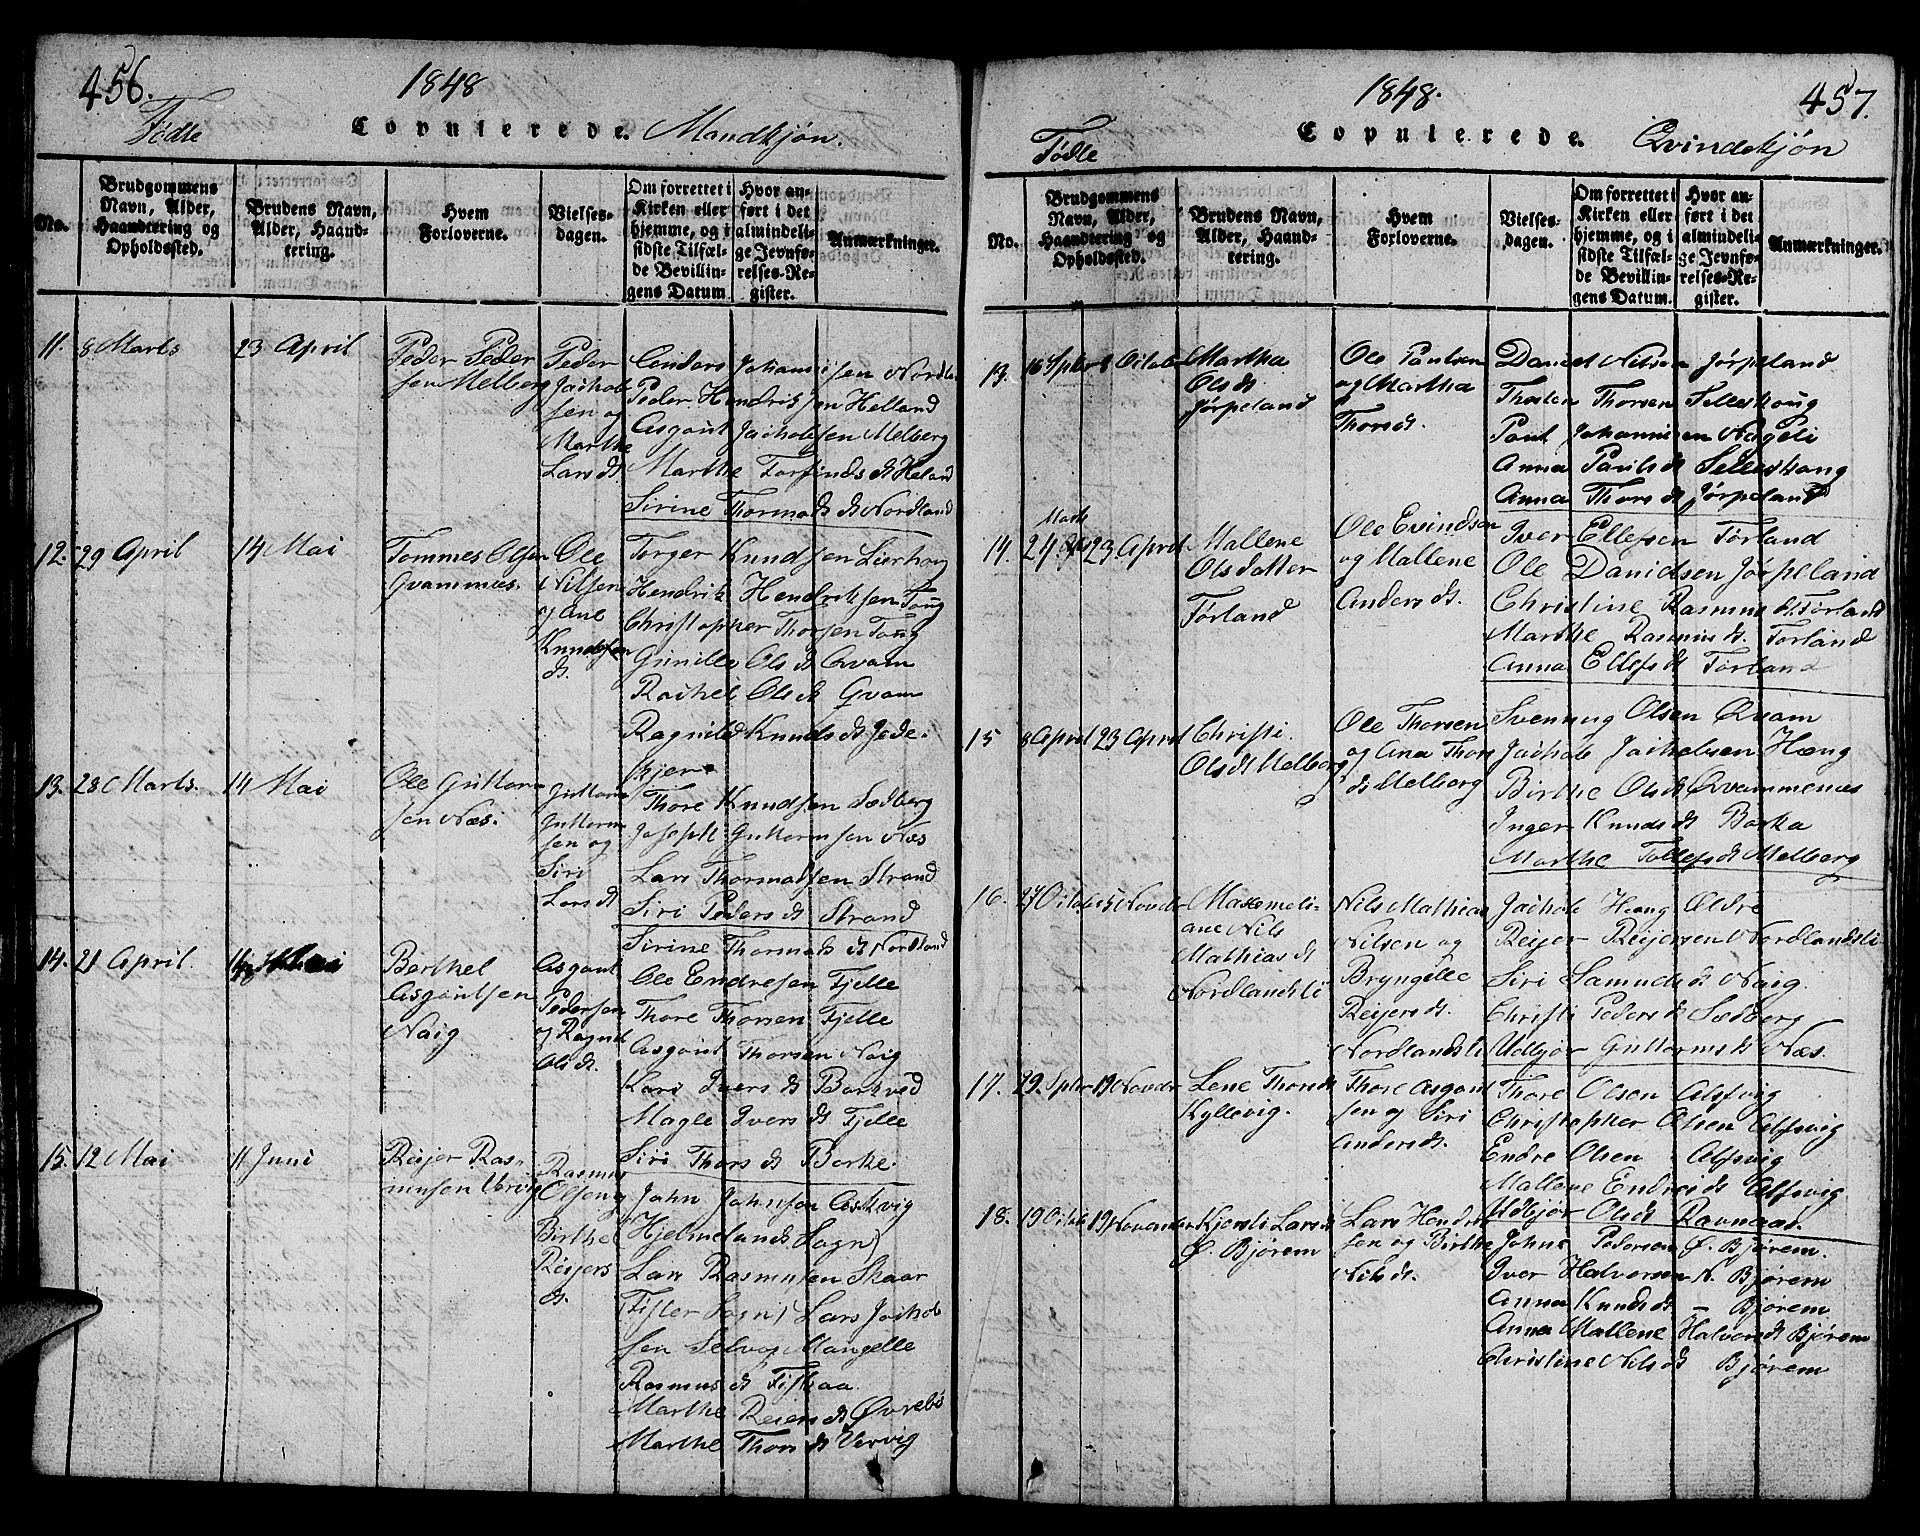 456.
1848
Fødte
Copulerede.
Mandkjøn.
No.
Brudgommens Navn, Alder, Haandtering og Opholdssted.
Brudens Navn, Alder, Haandtering.
Hvem Forloverne.
Vielses-dagen.
Om forrettet i Kirken eller hjemme, og i sidste Tilfælde Bevillingens Datum.
Hvor anført i det almindelige Jevnførelses-Register.
Anmærkninger.
11. 8 Marts
23 April
Peder Peder
sen Melberg
Peder
Jachob
sen og
Marthe
Larsdt
Anders Johannisen Nordla
Peder Hendriksen Helland
Asgout Jachobsen Melberg
Marthe Torfindsdt Heland
Sirine Thormodsdt Nordland
12. 29 April
14 Mai
Tommes Olsen
Qvammnes.
Ole
Nilsen
og Ane
Knudsen
dt.
Torger Knudsen Lierhoug
Hendrik Hendriksen Toug
Christopher Thorsen Toug
Gunille Olsdt Qvam
Rachel Olsdt Qvam
Ragnild Knudsdt Jøde-
kjen
13. 28 Marts.
14 Mai
Ole Guttorm
sen Næs.
Guttorm
Guttorm
sen og
Siri
Larsdt
Thore Knudsen Sædberg
Joseph Guttormsen Næs
Lars Thormodsen Strand
Siri Pedersdt Strand
Sirine Thormodsdt Nordland
14. 21 April.
14 Mai
Berthel
Asgoutsen
Naig
Asgout
Pedersen
og Ragnel
Olsdt.
Ole Endresen Fjelle
Thore Thorsen Fjelle
Asgout Thorsen Naig
Kari Iversdt Barkved
Magle Iversdt Fjelle
Siri Thorsdt Borke.
15. 12 Mai
11 Juni
Reijer Ras-
musen Vervig
Rasmus
Olsen og
Birthe
Reijers
dt.
John Johnsen Askvig
(Hjelmelands Sogn)
Lars Rasmusen Skaar
(Fister Sogn) Lars Jachob
sen Selvog Mangelle
Rasmusdt Fiskaa.
Marthe Reiersdt Øvrebø
Marthe Thorsdt Vervig
1848.
457.
Fødte
Copulerede.
Qvindekjøn
No.
Brudgommens Navn, Alder, Haandtering og Opholdssted.
Brudens Navn, Alder, Haandtering.
Hvem Forloverne.
Vielses-dagen.
Om forrettet i Kirken eller hjemme, og i sidste Tilfælde Bevillingens Datum.
Hvor anført i det almindelige Jevnførelses-Register.
Anmærkninger.
13. 16 Spber 8 Octobr
Martha
Olsdt.
Jørpeland
Ole Paulsen
og Martha
Thorsdt.
Daniel Nilsen Jørpeland
Thosten Thorsen Selleskoug
Paul Johannisen Nageli
Anna Paulsdt Selleskoug
Anna Thorsdt Jørpeland
14. 24 Marts 23 April
Mallene
Olsdatter
Førland
Ole Evindsen
og Mallene
Andersdt.
Iver Ellefsen Førland
Ole Danielsen Jørpeland
Christine Rasmusdt Førland
Marthe Rasmusdt. Førland
Anna Ellefsdt Førland
15 8 April 23 April
Christi.
Olsdt Melberg
Ole Thorsen
og Ana Thors
dt Melberg
Svennug Olsen Qvam
Jachob Jacholsen Hæng
Birthe Olsdt Qvammenæs
Inger Knudsdt Borka
Marthe Tollefsdt Melberg
16. 27 Octob 5 Novbr
Maxemeli-
ane Nils
Mathiasdt
Nordlandsli
Nils Mathias
Nilsen og
Bryngelle
Reijersdt.
Nordlandsli
Jachob Hæng Ældre
Reijer Reijersen Nordlandsli
Siri Samuelsdt Naig.
Christi Pedersdt Sædberg
Udbjør Guttormsdt Næs.
17. 29. Spber 19 Novbr
Lene Thorsdt
Kyllevig.
Thore Asgout
sen og Siri
Andersdt.
Thore Olsen Alsvig
Christopher Olsen Alsvig
Endre Olsen Alsvig
Mallene Endreisdt Alsvig
Udbjør Olsdt Ravnaas.
18. 19 Octob 19 November
Kjersti Larsdt
Ø. Bjørem
Lars Hendrik
sen og Birthe
Nilsdt.
Johne Pedersen Ø. Bjørem.
Iver Halvorsen N. Bjørem
Anna Knudsdt – Bjørem
Anna Mallene Halvorsdt Bjørem
Christine Nilsdt Bjørem